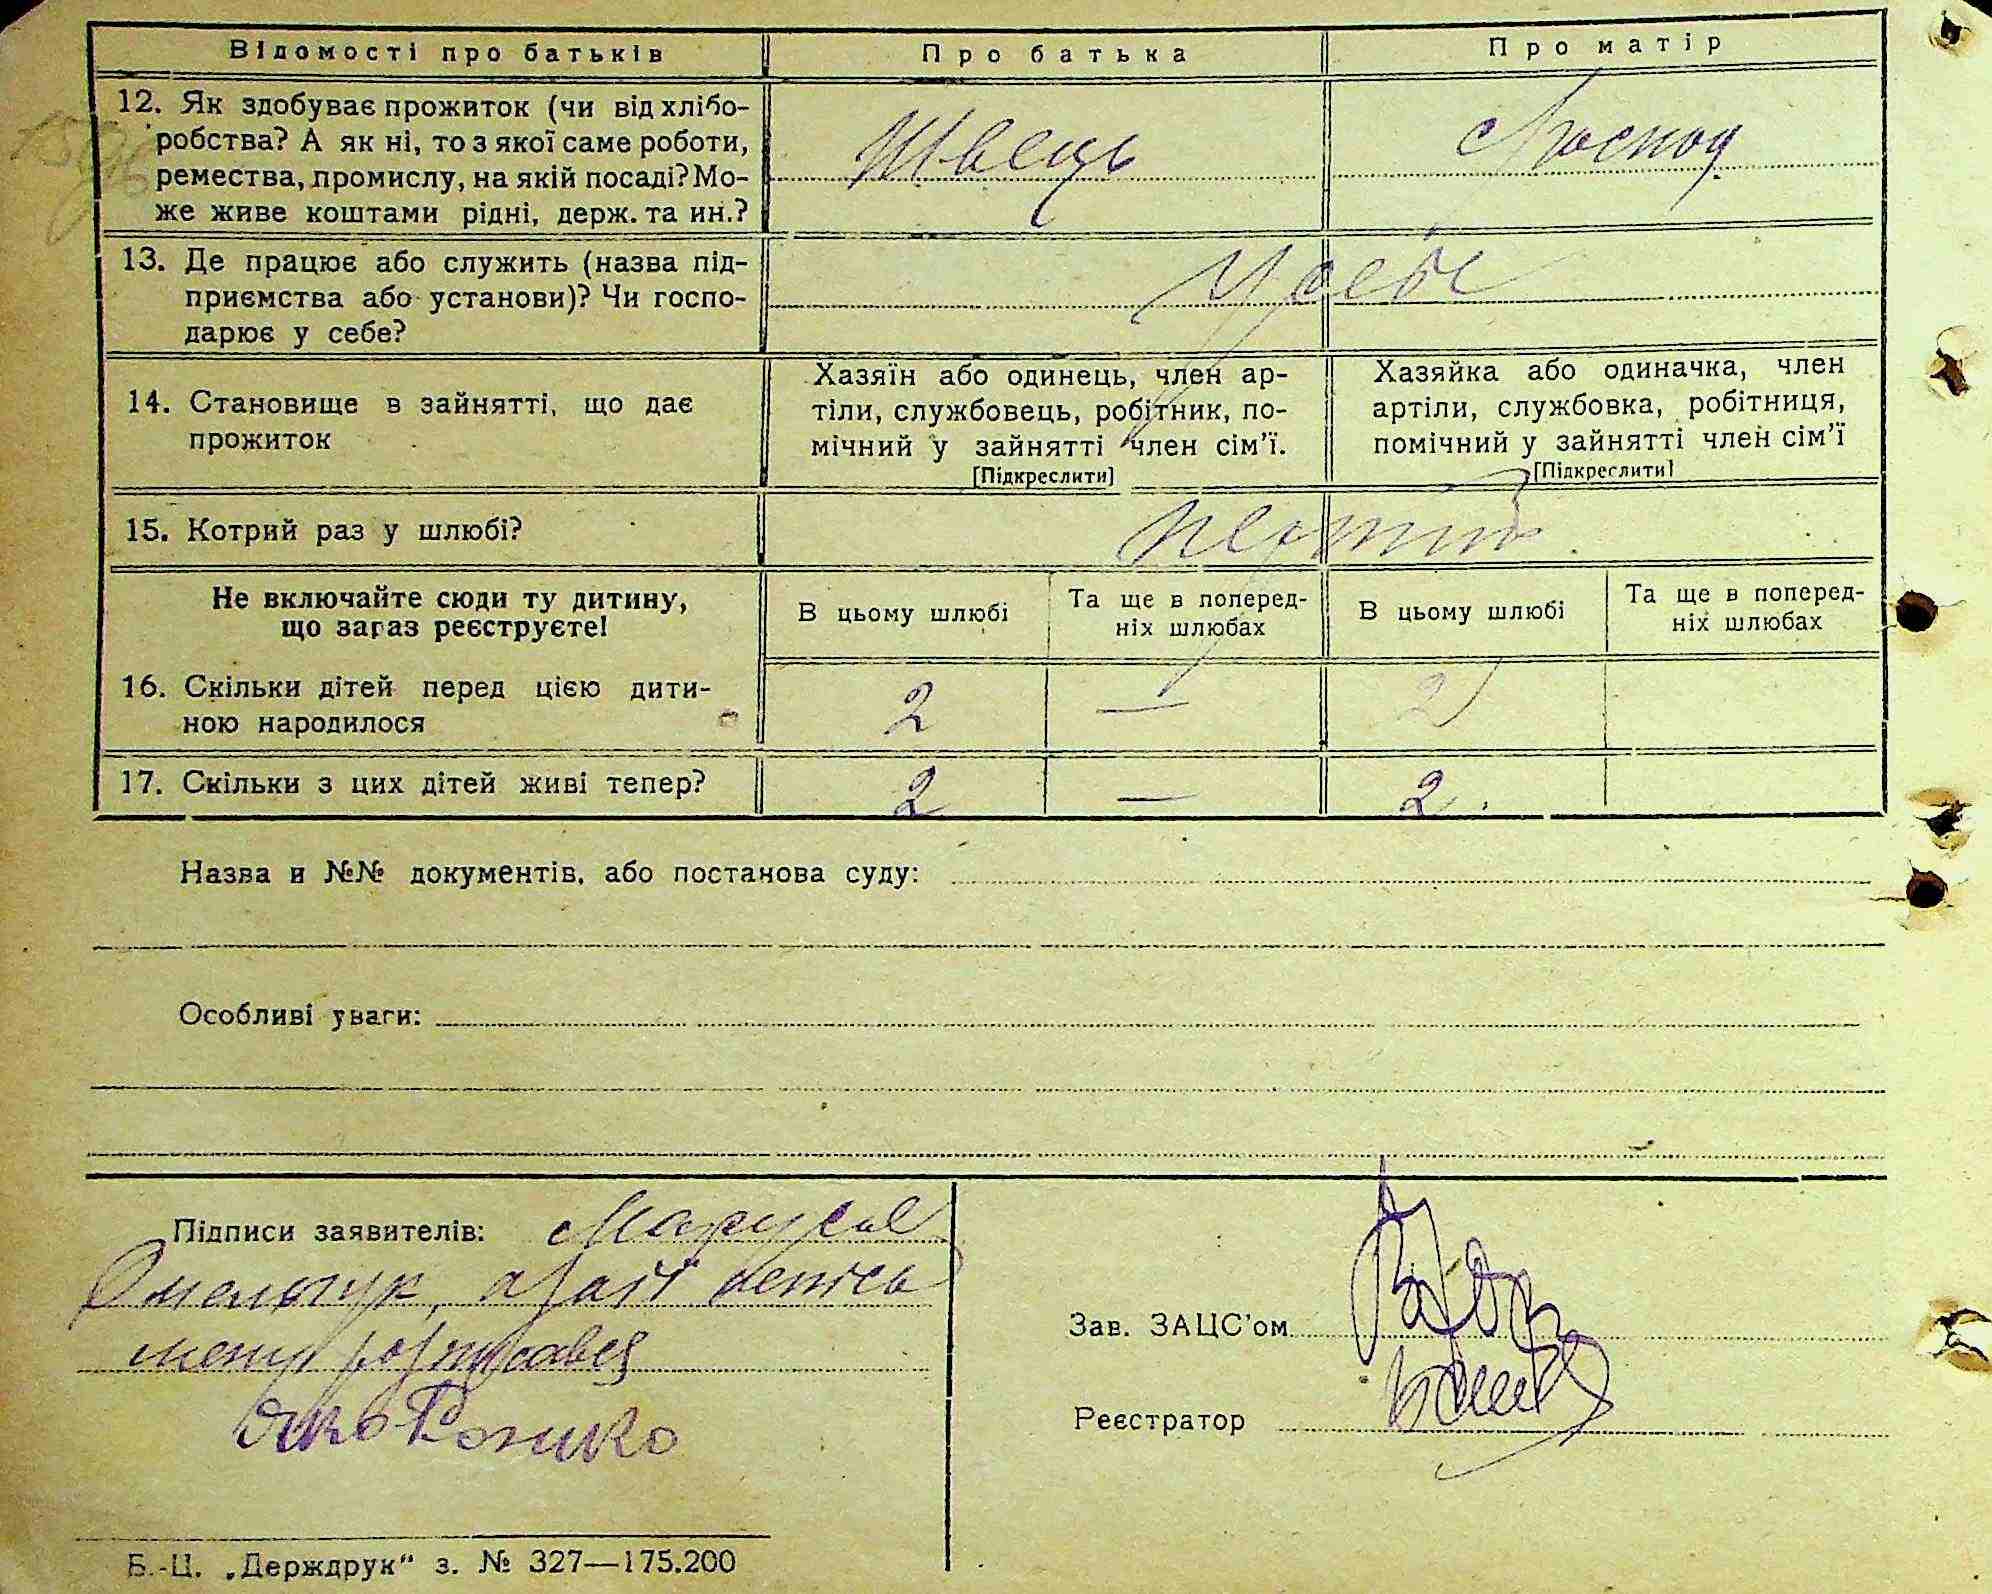 Відомості про батьків
Про батька
Про матір
12. Як здобуває прожиток (чи від хлібо-
робства? А як ні, то з якої саме роботи,
ремества, промислу, на якій посаді? Мо-
же живе коштами рідні, держ. та ин.?
Швець
Господ.
13. Де працює або служить (назва під-
приємства або установи)? Чи госпо-
дарює у себе?
У себе
14. Становище в зайнятті, що дає
прожиток
Хазяїн або одинець, член ар-
тіли, службовець, робітник, по-
мічний у зайнятті член сім'ї.
[Підкреслити]
Хазяйка або одиначка, член
артіли, службовка, робітниця,
помічний у зайнятті член сім'ї
[Підкреслити]
15. Котрий раз у шлюбі?
перший
Не включайте сюди ту дитину,
що зараз реєструєте!
В цьому шлюбі
Та ще в поперед-
ніх шлюбах
В цьому шлюбі
Та ще в поперед-
ніх шлюбах
16. Скільки дітей перед цією дити-
ною народилося
2 — 2
17. Скільки з цих дітей живі тепер?
2 — 2.
Назва и №№ документів, або постанова суду:
Особливі уваги:
Підписи заявителів: Маруся
Омельчук, а за її непись
менну розписався
Зав. ЗАЦС'ом
Реєстратор
Б.-Ц. „Держдрук" з. № 327—175.200